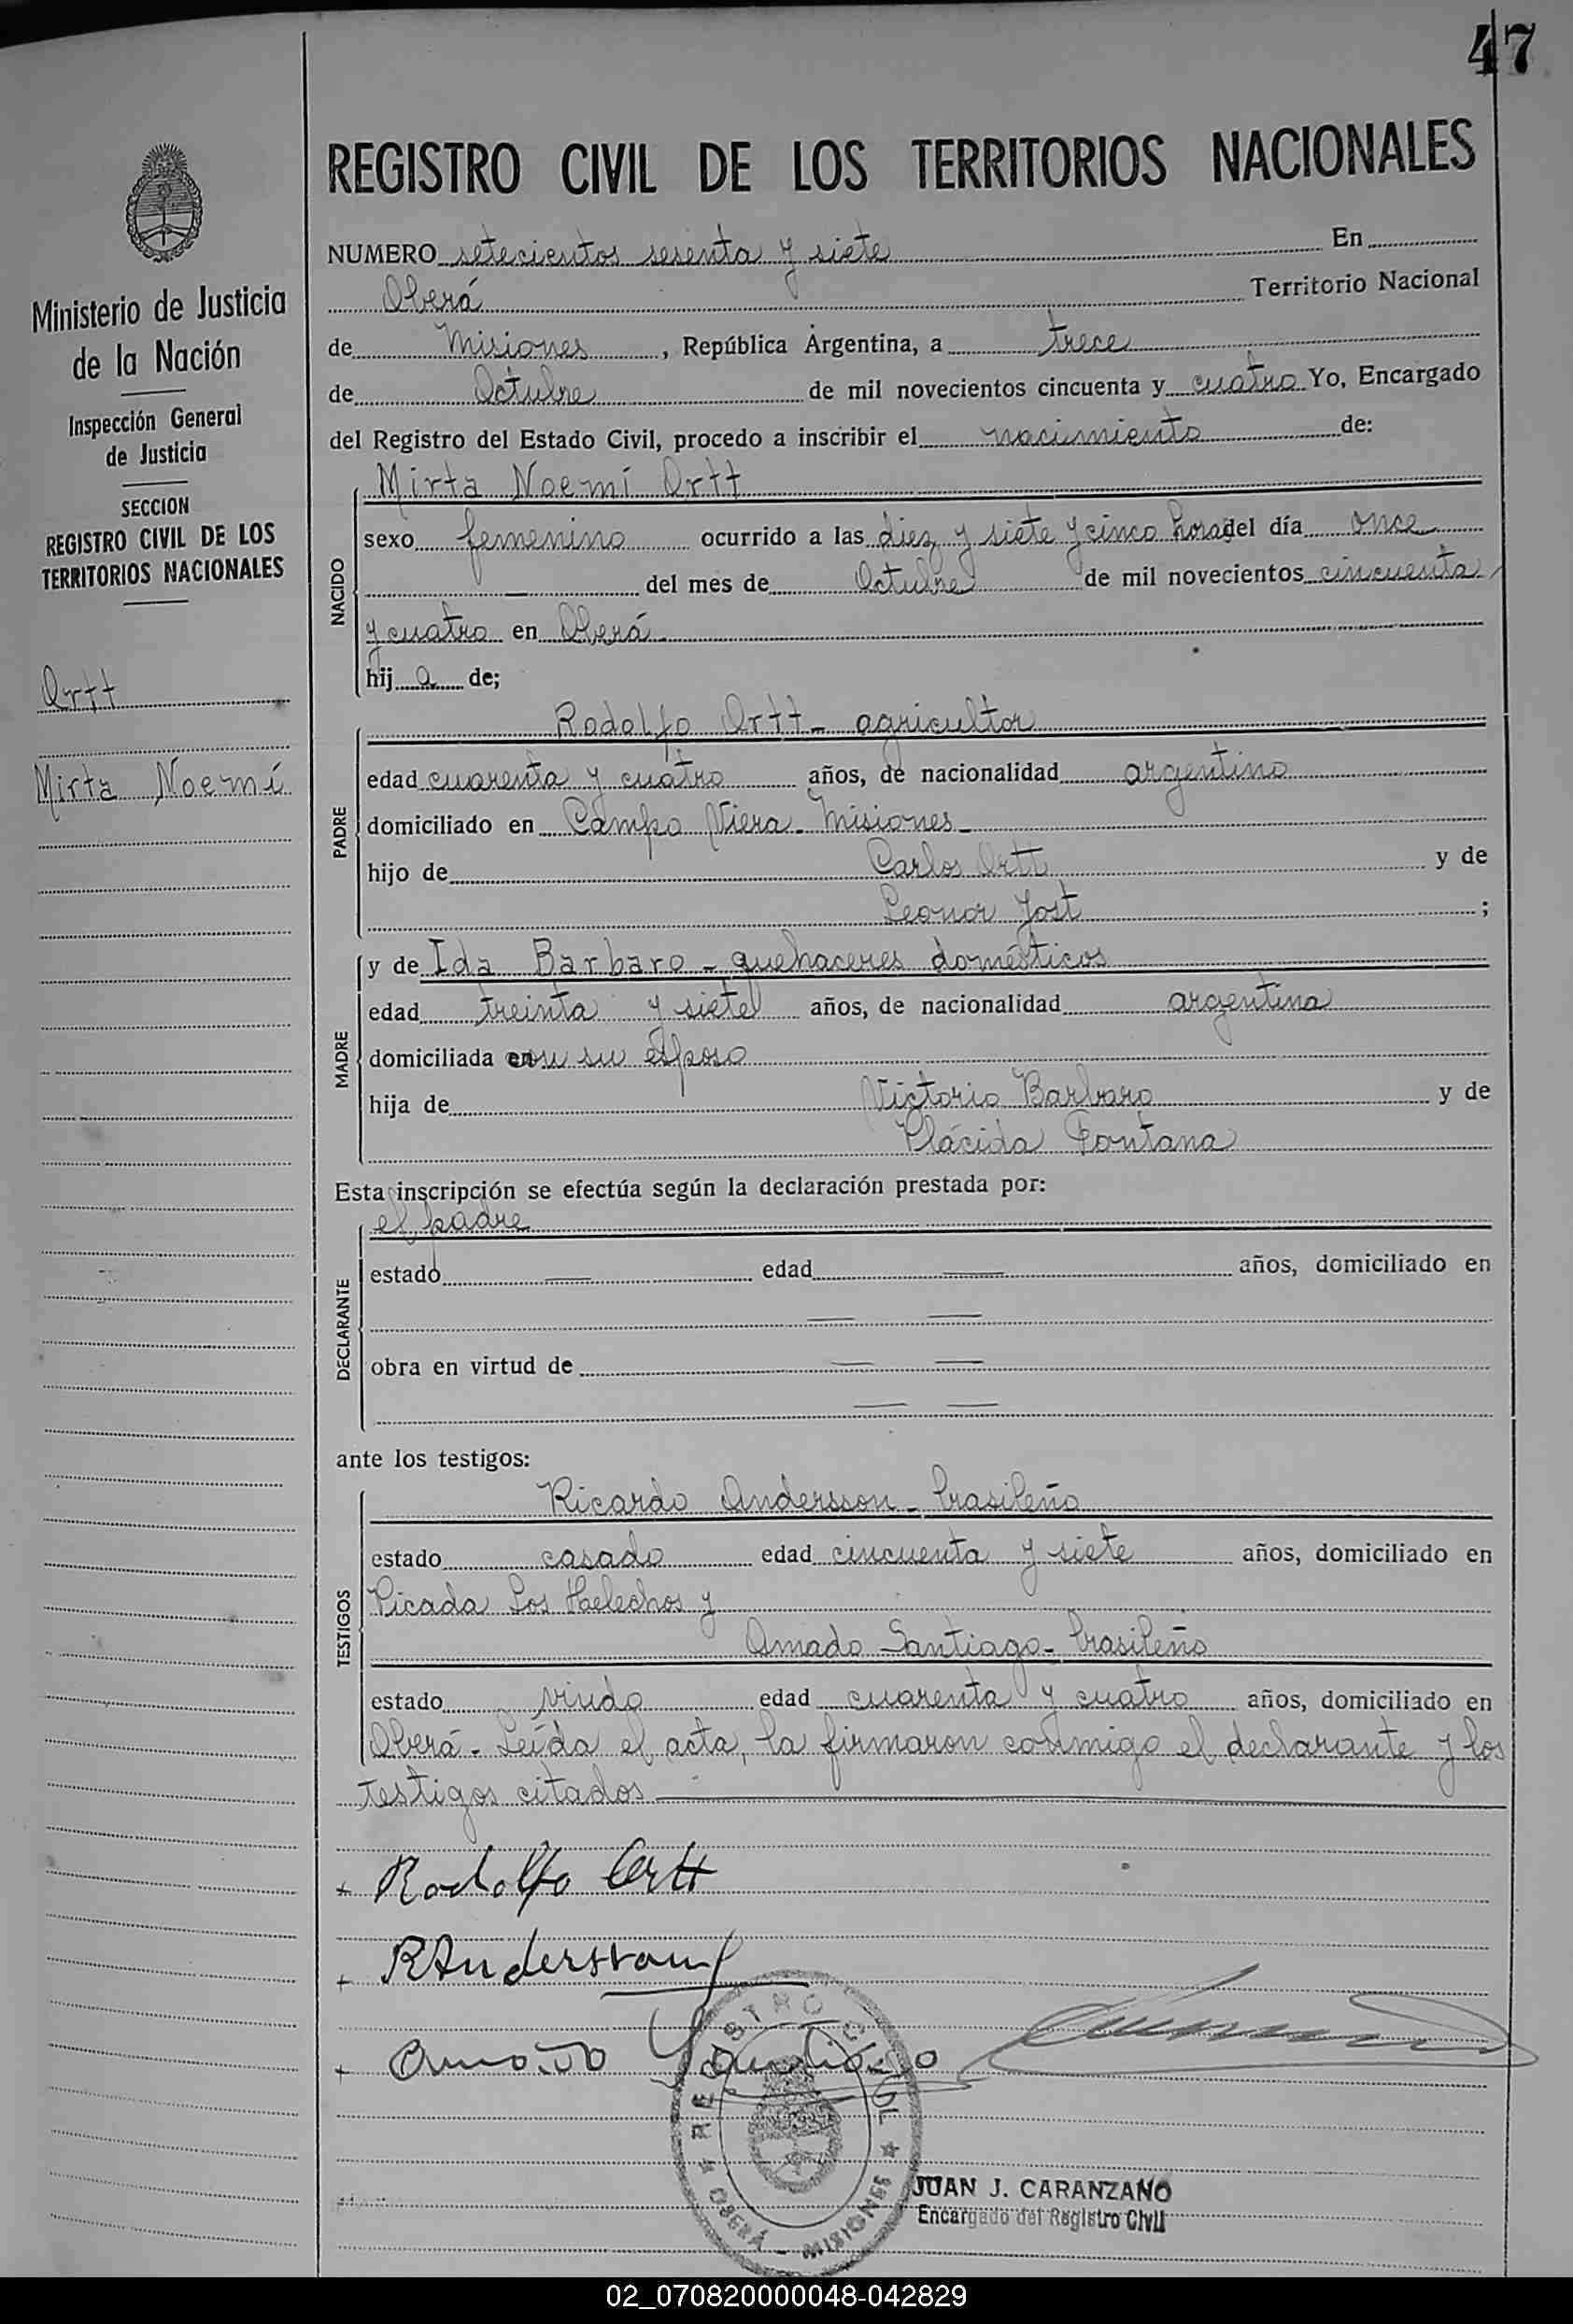 47
REGISTRO CIVIL DE LOS TERRITORIOS NACIONALES
Ministerio de Justicia
de la Nación
Inspección General
de Justicia
SECCION
REGISTRO CIVIL DE LOS
TERRITORIOS NACIONALES
Ortt
Mirta Noemí
NUMERO setecientos sesenta y siete En
Oberá Territorio Nacional
de Misiones, República Argentina, a trece
de Octubre de mil novecientos cincuenta y cuatro Yo, Encargado
del Registro del Estado Civil, procedo a inscribir el nacimiento de:
NACIDO
Mirta Noemí Ortt
sexo femenino ocurrido a las diez y siete y cinco horas del día once
— del mes de Octubre de mil novecientos cincuenta
y cuatro en Oberá
hija de;
PADRE
Rodolfo Ortt - agricultor
edad cuarenta y cuatro años, de nacionalidad argentino
domiciliado en Campo Viera - Misiones -
hijo de Carlos Ortt y de
Leonor Jost ;
MADRE
y de Ida Barbaro - quehaceres domésticos
edad treinta y siete años, de nacionalidad argentina
domiciliada con su esposo
hija de Victorio Barbaro y de
Plácida Fontana
Esta inscripción se efectúa según la declaración prestada por:
DECLARANTE
el padre
estado — edad — años, domiciliado en
— —
obra en virtud de — —
— —
ante los testigos:
TESTIGOS
Ricardo Andersson - brasileño
estado casado edad cincuenta y siete años, domiciliado en
Picada Los Helechos y
Amado Santiago - brasileño
estado viudo edad cuarenta y cuatro años, domiciliado en
Oberá - Leída el acta, la firmaron conmigo el declarante y los
testigos citados
+ Rodolfo Ortt
+ RAndersson
+ Amado Santiago
REGISTRO CIVIL
OBERÁ - MISIONES
JUAN J. CARANZANO
Encargado del Registro Civil
02_070820000048-042829